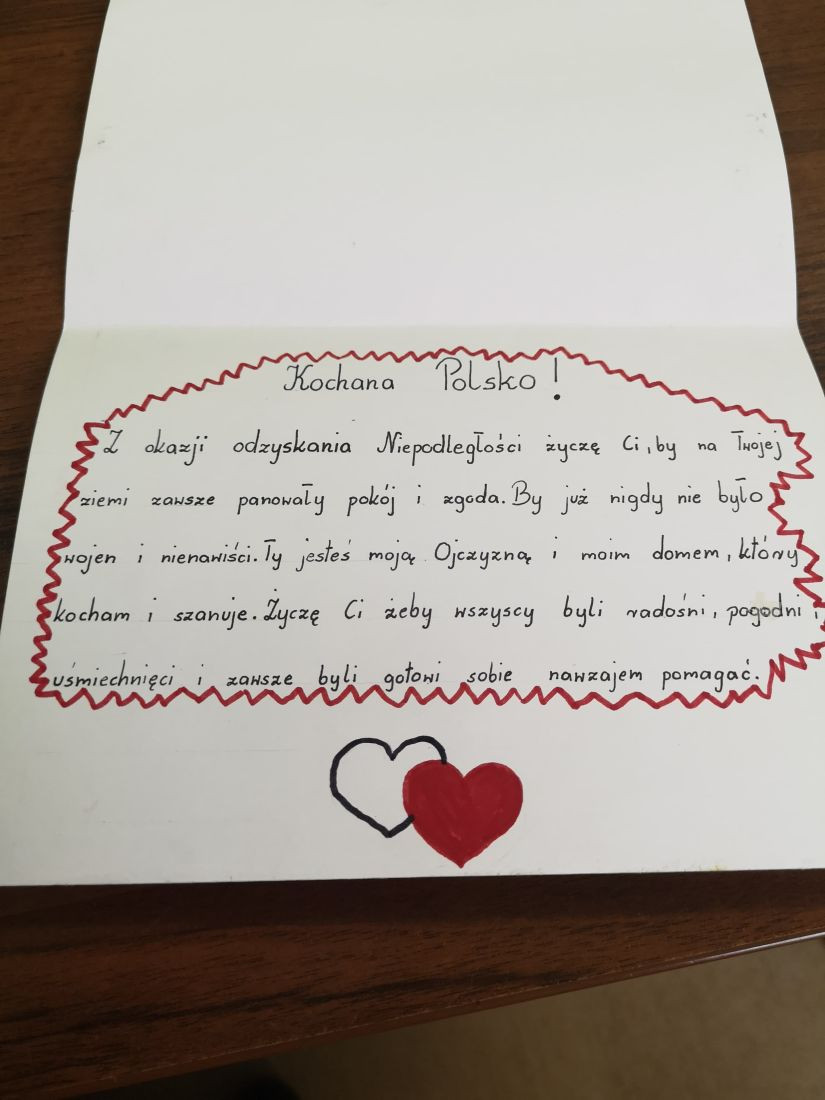 Kochana Polsko!
Z okazji odzyskania Niepodległości życzę Ci, by na Twojej
ziemi zawsze panowały pokój i zgoda. By już nigdy nie było
wojen i nienawiści. Ty jesteś moją Ojczyzną i moim domem, który
kocham i szanuje. Życzę Ci żeby wszyscy byli radośni, pogodni i
uśmiechnięci i zawsze byli gotowi sobie nawzajem pomagać.